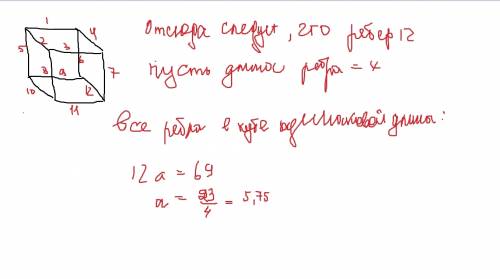 1
2 3 4
5 6
8 9 7
10 12
11
Отсюда следует, что ребер 12
Пусть длина ребра = x
Все ребра в кубе одинаковой длины:
12a = 69
a = 23/4 = 5,75